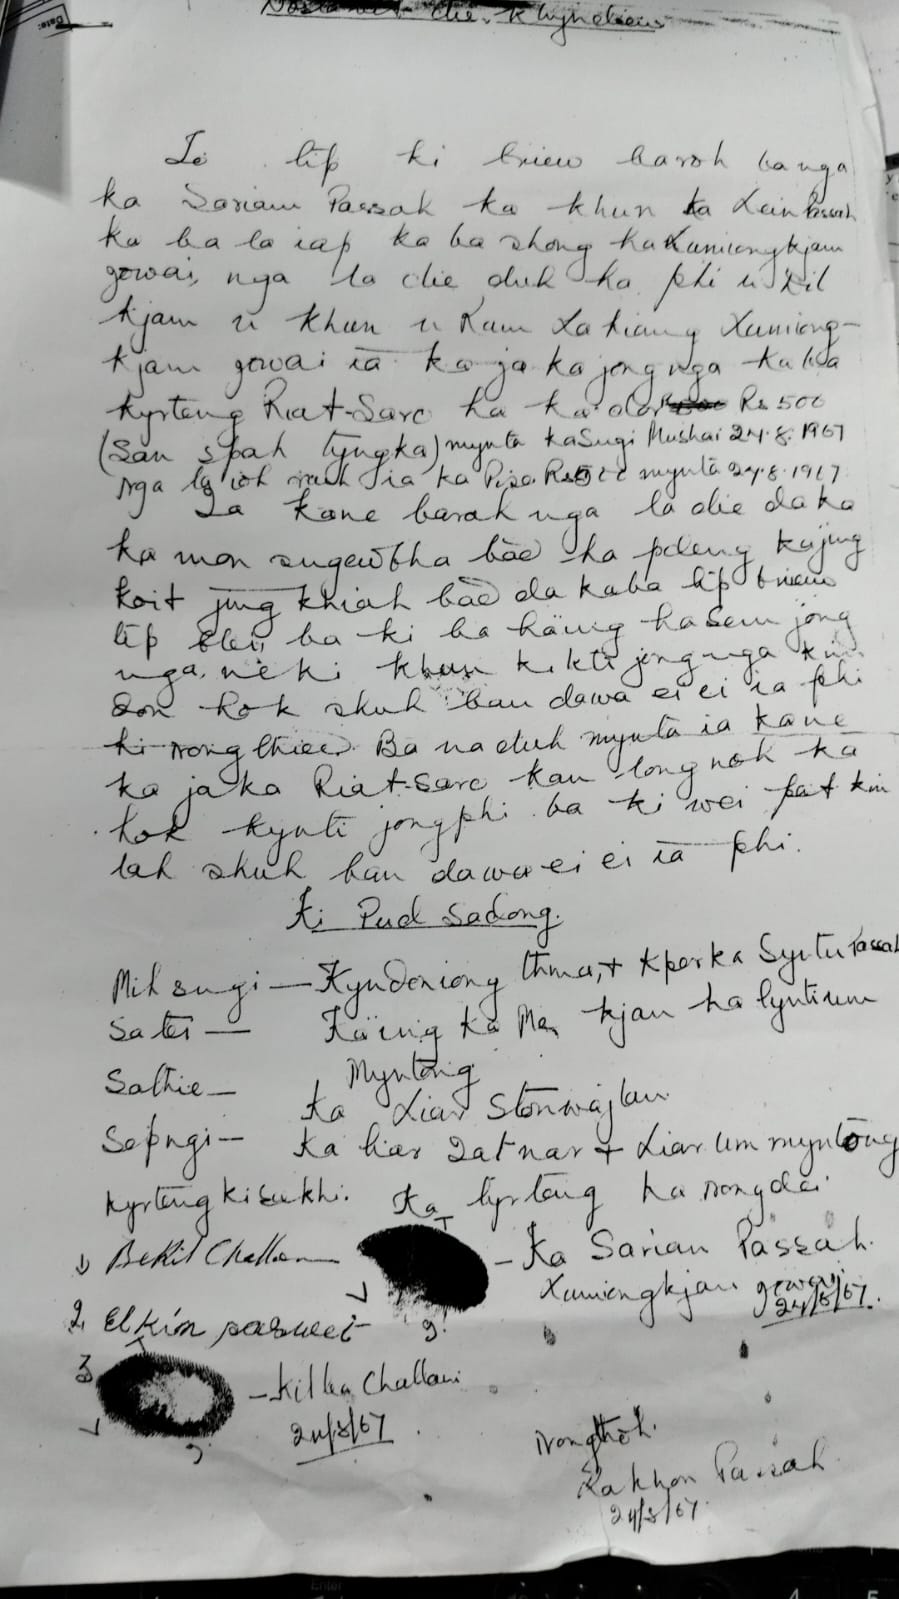 die, K hyndeiew
Le tip ki briew baroh ba nga
ka Sariam Passah ka khun ka Lein Passah
ka ba la iap ka ba shong ha Lumiongkjam
gowai, nga la die duh ha phi u Kil
kjam u khun u Ram Lakiang Lumiong-
kjam gowai ïa ka ja ka jong nga ka ba
kyrteng Riat-Saro ha ka dor Rs 500
(San spah tyngka) mynta ka Sugi Mushai 24.8.1967
Nga la ioh ruh ia ka Pisa Rs mynta 24.8.1967
Ia kane barah nga la die da ka
ka mon sngewbha bad ha pdeng ka jing
koit jing khiah bad da kaba tip briew
tip blei, ba ki ba haïng hasem jong
nga, ne ki khun ki kti jong nga kin
don hok shuh ban dawa ei ei ia phi
ki nongthied. Ba naduh mynta ia kane
ka jaka Riat-saro kan long noh ka
hok kynti jong phi ba ki wei pat kin
lah shuh ban dawa ei ei ïa phi.
Ki Pud Sadong.
Mih sngi — Kyndeniong thma, + Kper ka Syntu Passah
Satei — Kaïng ka Me kjam ha lyntium
Myntong
Sathie — Ka Liar Stonwajlan
Sepngi — Ka liar Latnar + Liar um myntong
Kyrteng ki sukhi. Ka kyrteng ka nongdei
1) BeKil Challam — — Ka Sarian Passah.
Lumiongkjam gowai
24/8/67.
2. Elkin paswet
3 — Killa Challam
24/8/67
Nongthoh.
Lakhon Passah
24/8/67.